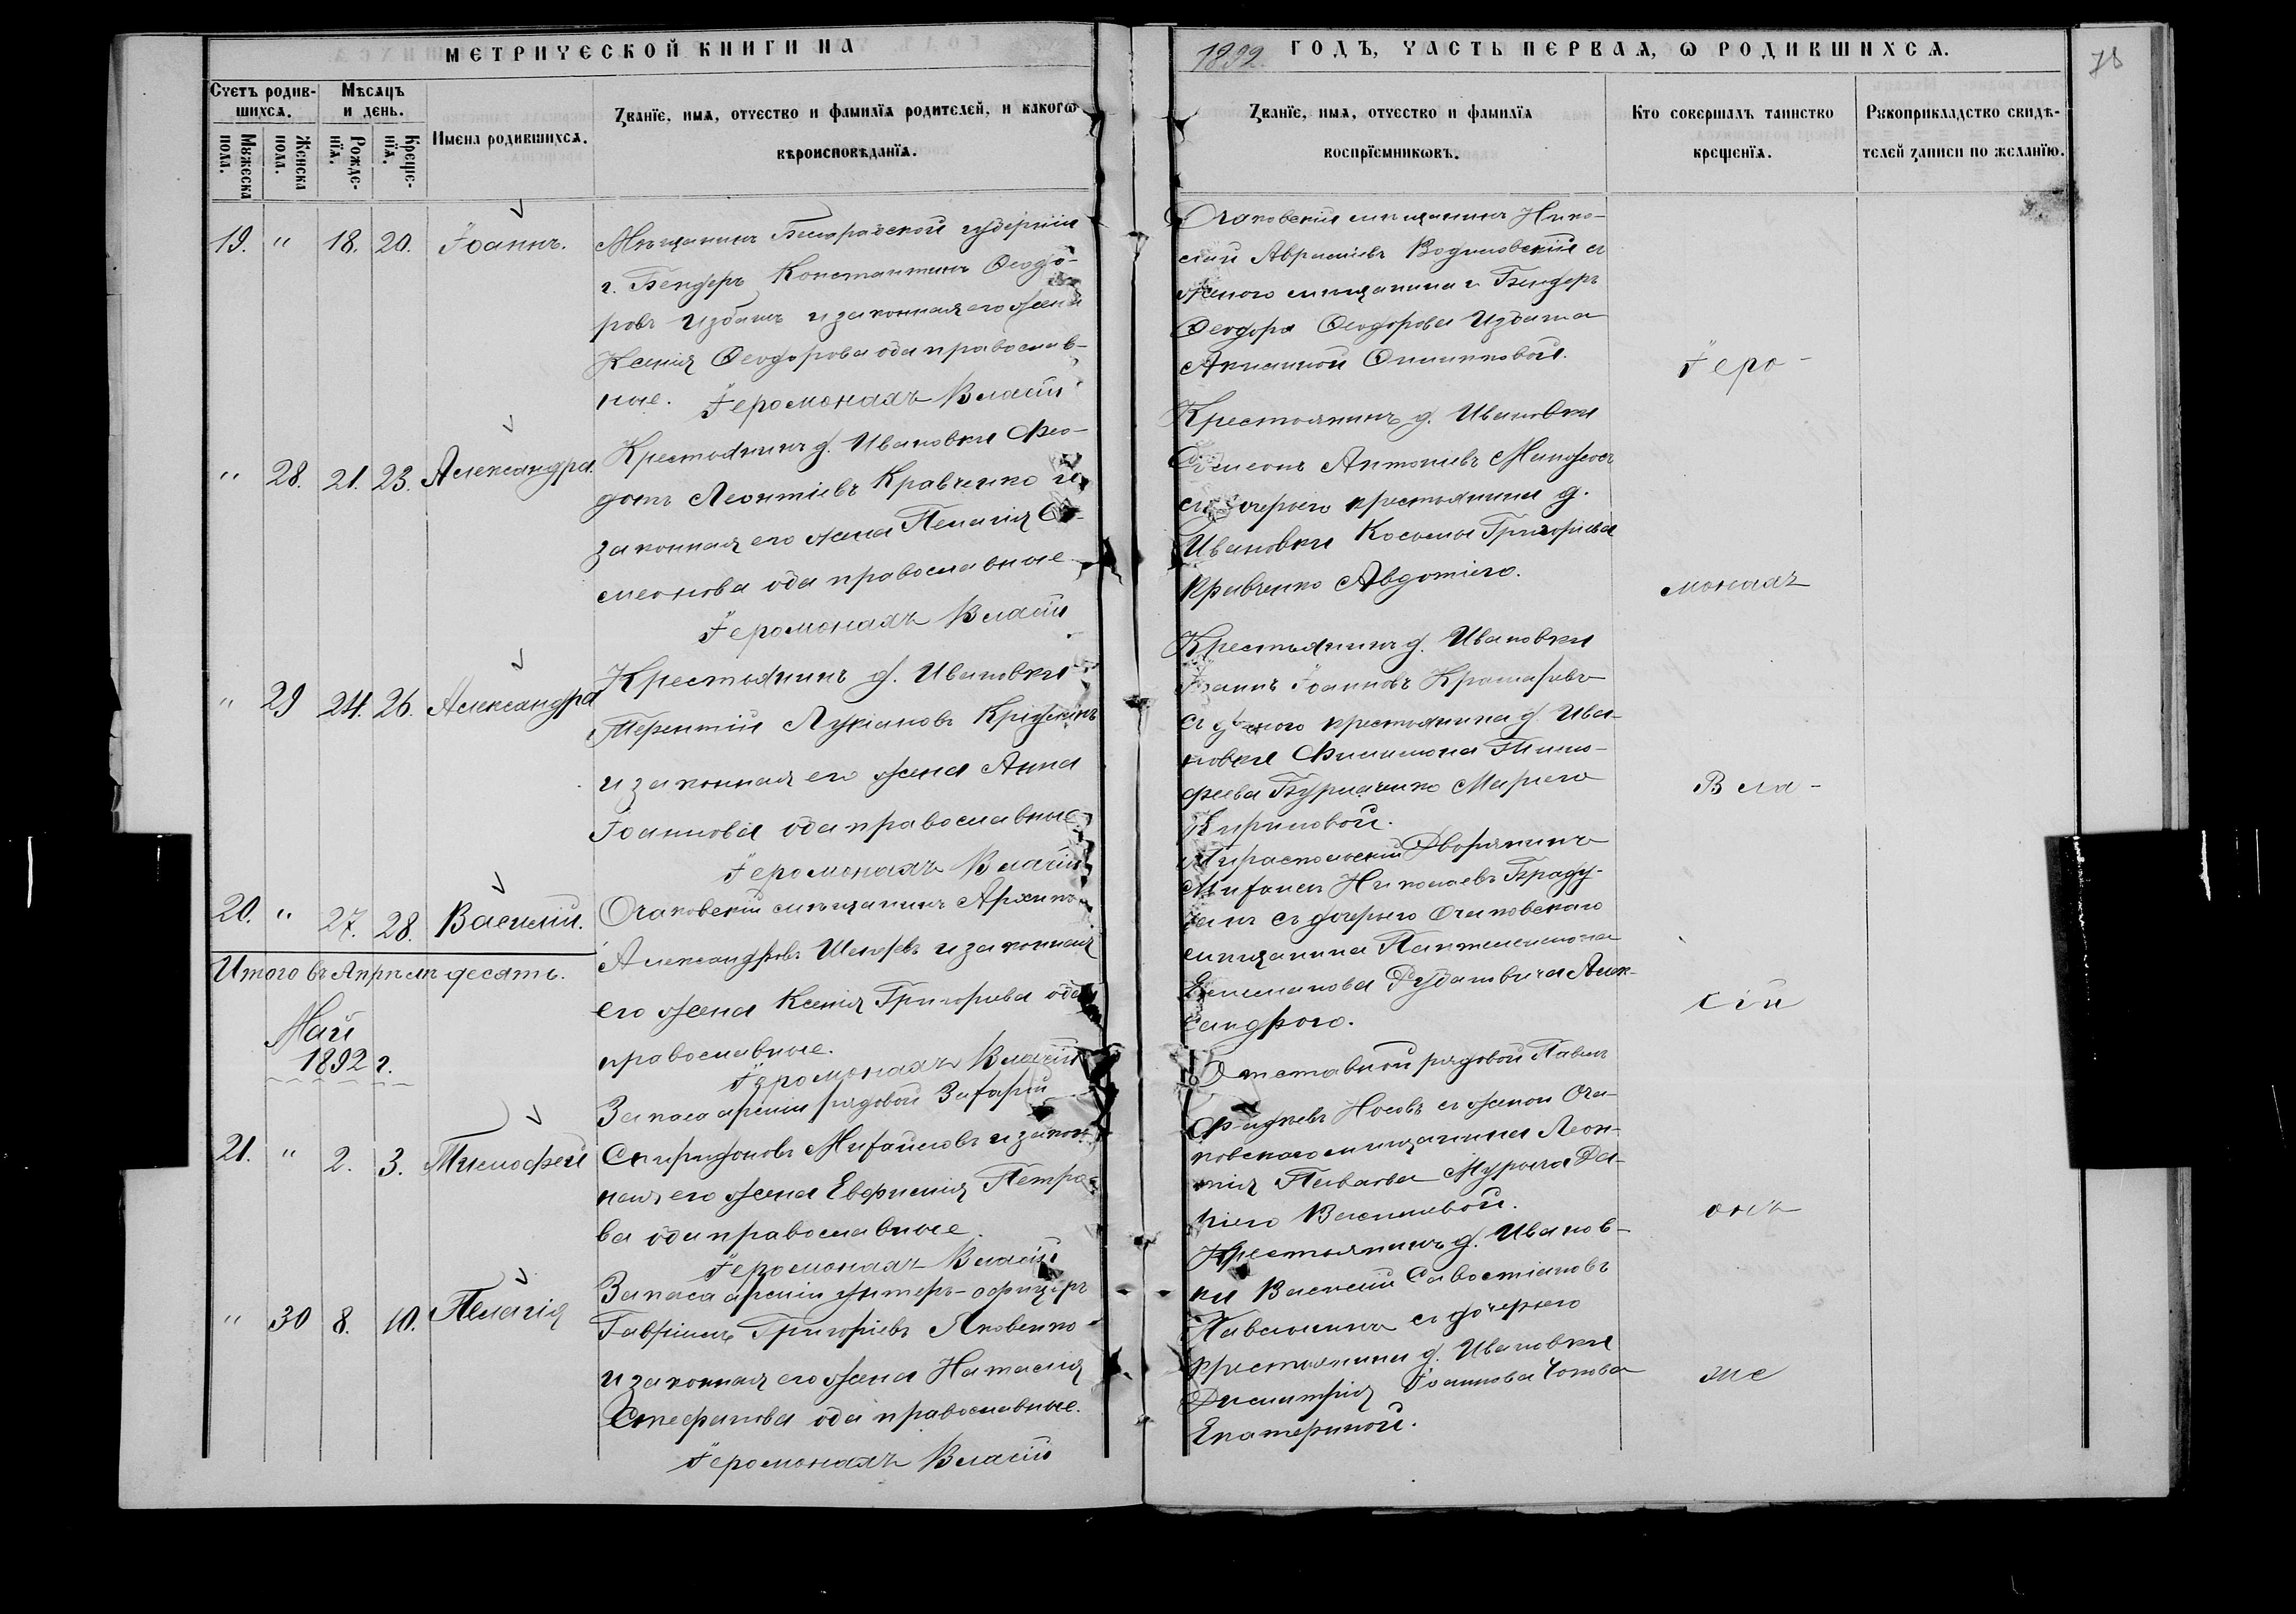 МЕТРИЧЕСКОЙ КНИГИ НА
1892 ГОДЪ, ЧАСТЬ ПЕРВАЯ, Ѡ РОДИВШИХСЯ.
78
Счетъ родив-
шихся.
Мужеска
пола.
Женска
пола.
Мѣсяцъ
и день.
Рожде-
нїя.
Креще-
нїя.
Имена родившихся.
Званїе, имя, отчество и фамилїя родителей, и какогѡ
вѣроисповѣданїя.
Званїе, имя, отчество и фамилїя
воспрїемниковъ.
Кто совершалъ таинство
крещенїя.
Рукоприкладство свидѣ-
телей записи по желанїю.
19. " 18. 20. Іоаннъ.
Мѣщанинъ Бессарабской губерніи
г. Бендеръ Константинъ Ѳеодо-
ровъ Избашъ и законная его жена
Ксенія Ѳеодорова оба православ-
ные. Іеромонахъ Власій
Очаковскій мѣщанинъ Нико-
лай
женою мѣщанина г. Бендеръ
Ѳеодора Ѳеодорова Избаша
" 28. 21. 23. Александра.
Крестьянинъ д. Ивановки Фео-
дотъ Леонтіевъ Кравченко и
законная его жена Пелагія Си-
меонова оба православные
Іеромонахъ Власій
Крестьянинъ д. Ивановки
Симеонъ Антоніевъ
съ дочерью крестьянина д.
Ивановки Косьмы Григорьева
Кравченко Авдотіею.
" 29 24. 26. Александра
Крестьянинъ д. Ивановки
Терентій Лукіановъ
и законная его жена Анна
Іоаннова оба православные
Іеромонахъ Власій
Крестьянинъ д. Ивановки
Іоаннъ Іоанновъ
крестьянина д. Ива-
новки Филимона Тимо-
феева Бурлаченко Маріею
Кириловой.
20. " 27. 28. Василій.
Очаковскій мѣщанинъ Архипъ
Александровъ и законная
его жена Ксенія Григорьева оба
православные.
Іеромонахъ Власій
Тираспольскій Дворянинъ
Михаилъ Николаевъ
съ дочерью Очаковскаго
мѣщанина Пантелеимона
Алек-
сандрою.
Итого въ Апрѣлѣ десять.
Май
1892 г.
21. " 2. 3. Тимофей
Запаса арміи рядовой Захарій
Спиридоновъ Михайловъ и закон-
ная его жена Евфимія Петро-
ва оба православные.
Іеромонахъ Власій
Отставной рядовой Павелъ
Фадѣевъ Носовъ съ женою Оча-
ковскаго мѣщанина Леон-
тія Да-
ріею Васильевой.
" 30 8. 10. Пелагія
Запаса арміи унтеръ-офицеръ
Гавріилъ Григоріевъ Яковенко
и законная его жена Наталія
Стефанова оба православные.
Іеромонахъ Власій
Крестьянинъ д. Иванов-
ки Василій Савостіановъ
съ дочерью
крестьянина д. Ивановки
Димитрія Іоаннова
Екатериной.
Іеро-
монахъ
Вла-
сій
онъ
же